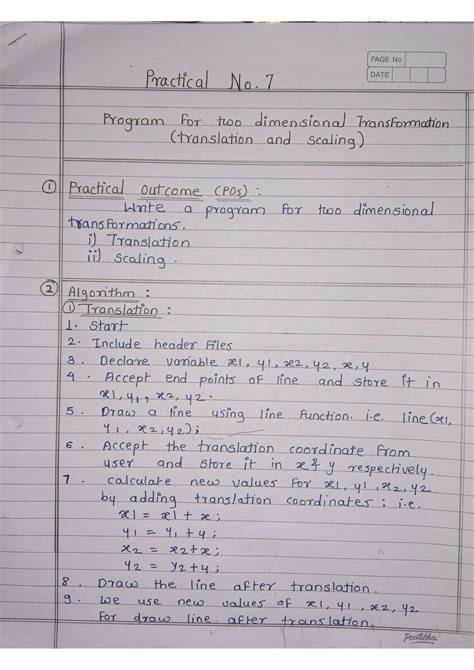 PAGE No.
DATE
Practical No. 7
Program for two dimensional Transformation
(translation and scaling)
① Practical outcome (POs) :
Write a program for two dimensional
transformations.
i) Translation
ii) Scaling.
② Algorithm :
① Translation :
1. Start
2. Include header files
3. Declare variable x1, y1, x2, y2, x, y
4. Accept end points of line and store it in
x1, y1, x2, y2.
5. Draw a line using line function. i.e. line(x1,
y1, x2, y2);
6. Accept the translation coordinate from
user and store it in x & y respectively.
7. calculate new values for x1, y1, x2, y2
by adding translation coordinates : i.e.
x1 = x1 + x;
y1 = y1 + y;
x2 = x2 + x;
y2 = y2 + y;
8. Draw the line after translation.
9. We use new values of x1, y1, x2, y2
for draw line after translation.
Pratibha